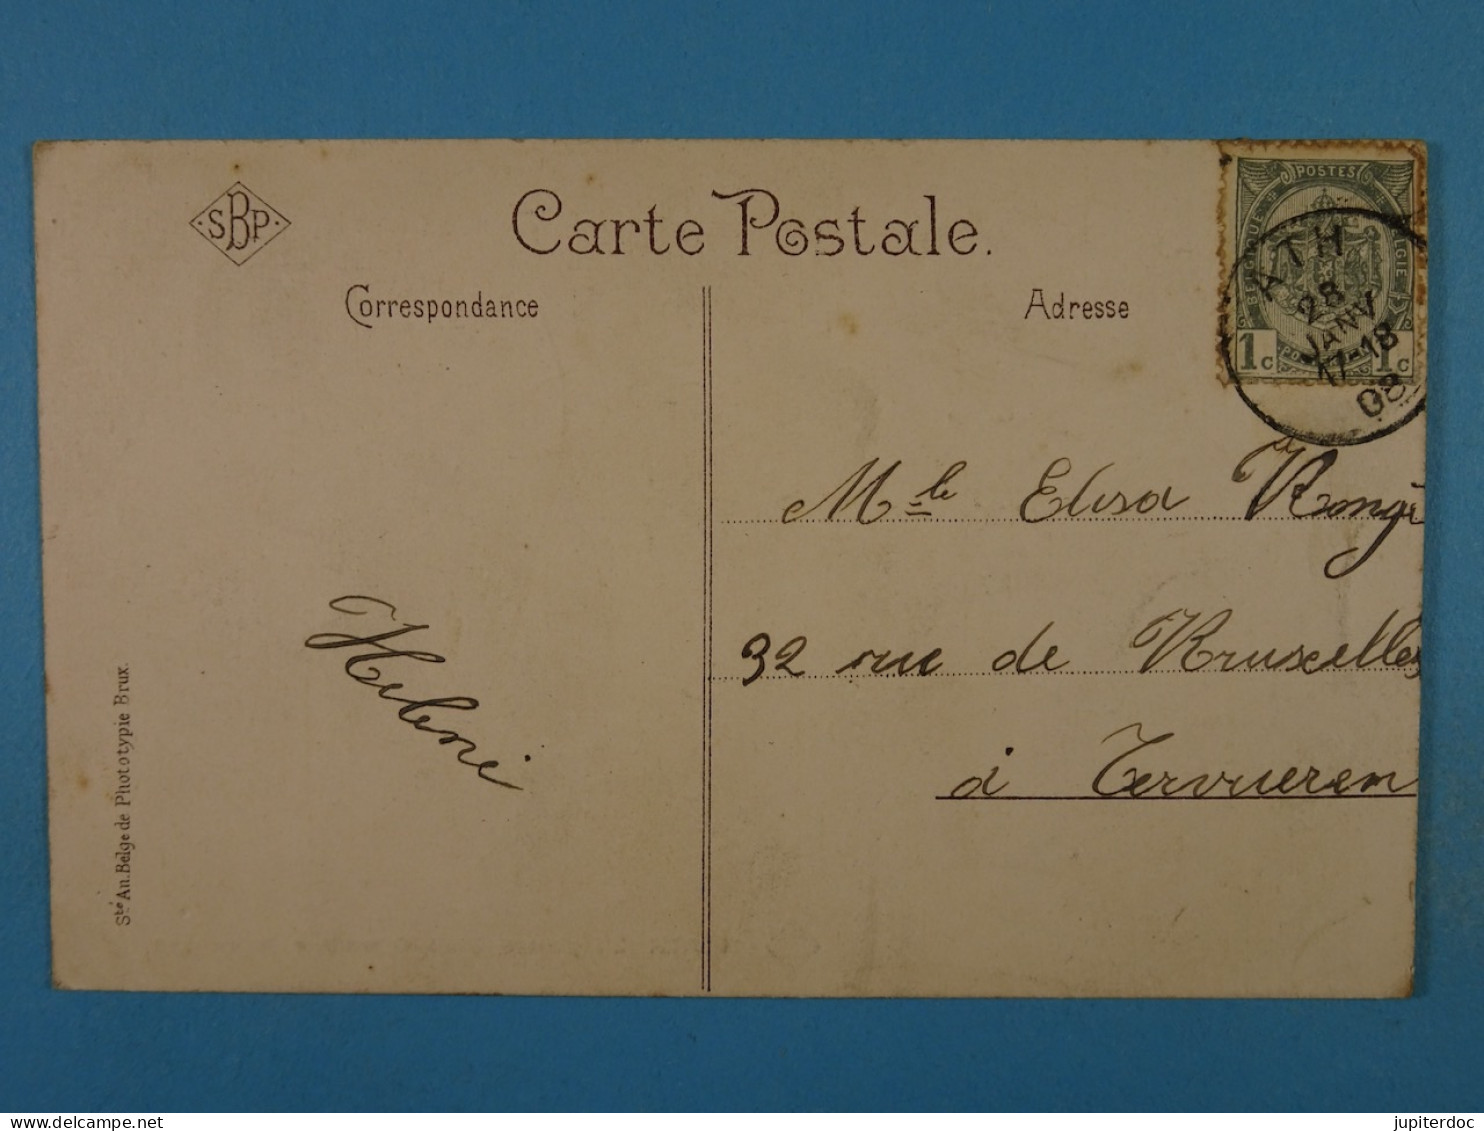 SBP
Carte Postale.
Correspondance
Adresse
POSTES
BELGIQUE
BELGIË
1c
1c
ATH
28
JANV
17-18
08
Mlle Elisa
32 rue de Bruxelles
à Tervueren
Helene
Sté An. Belge de Phototypie Brux.
delcampe.net
jupiterdoc